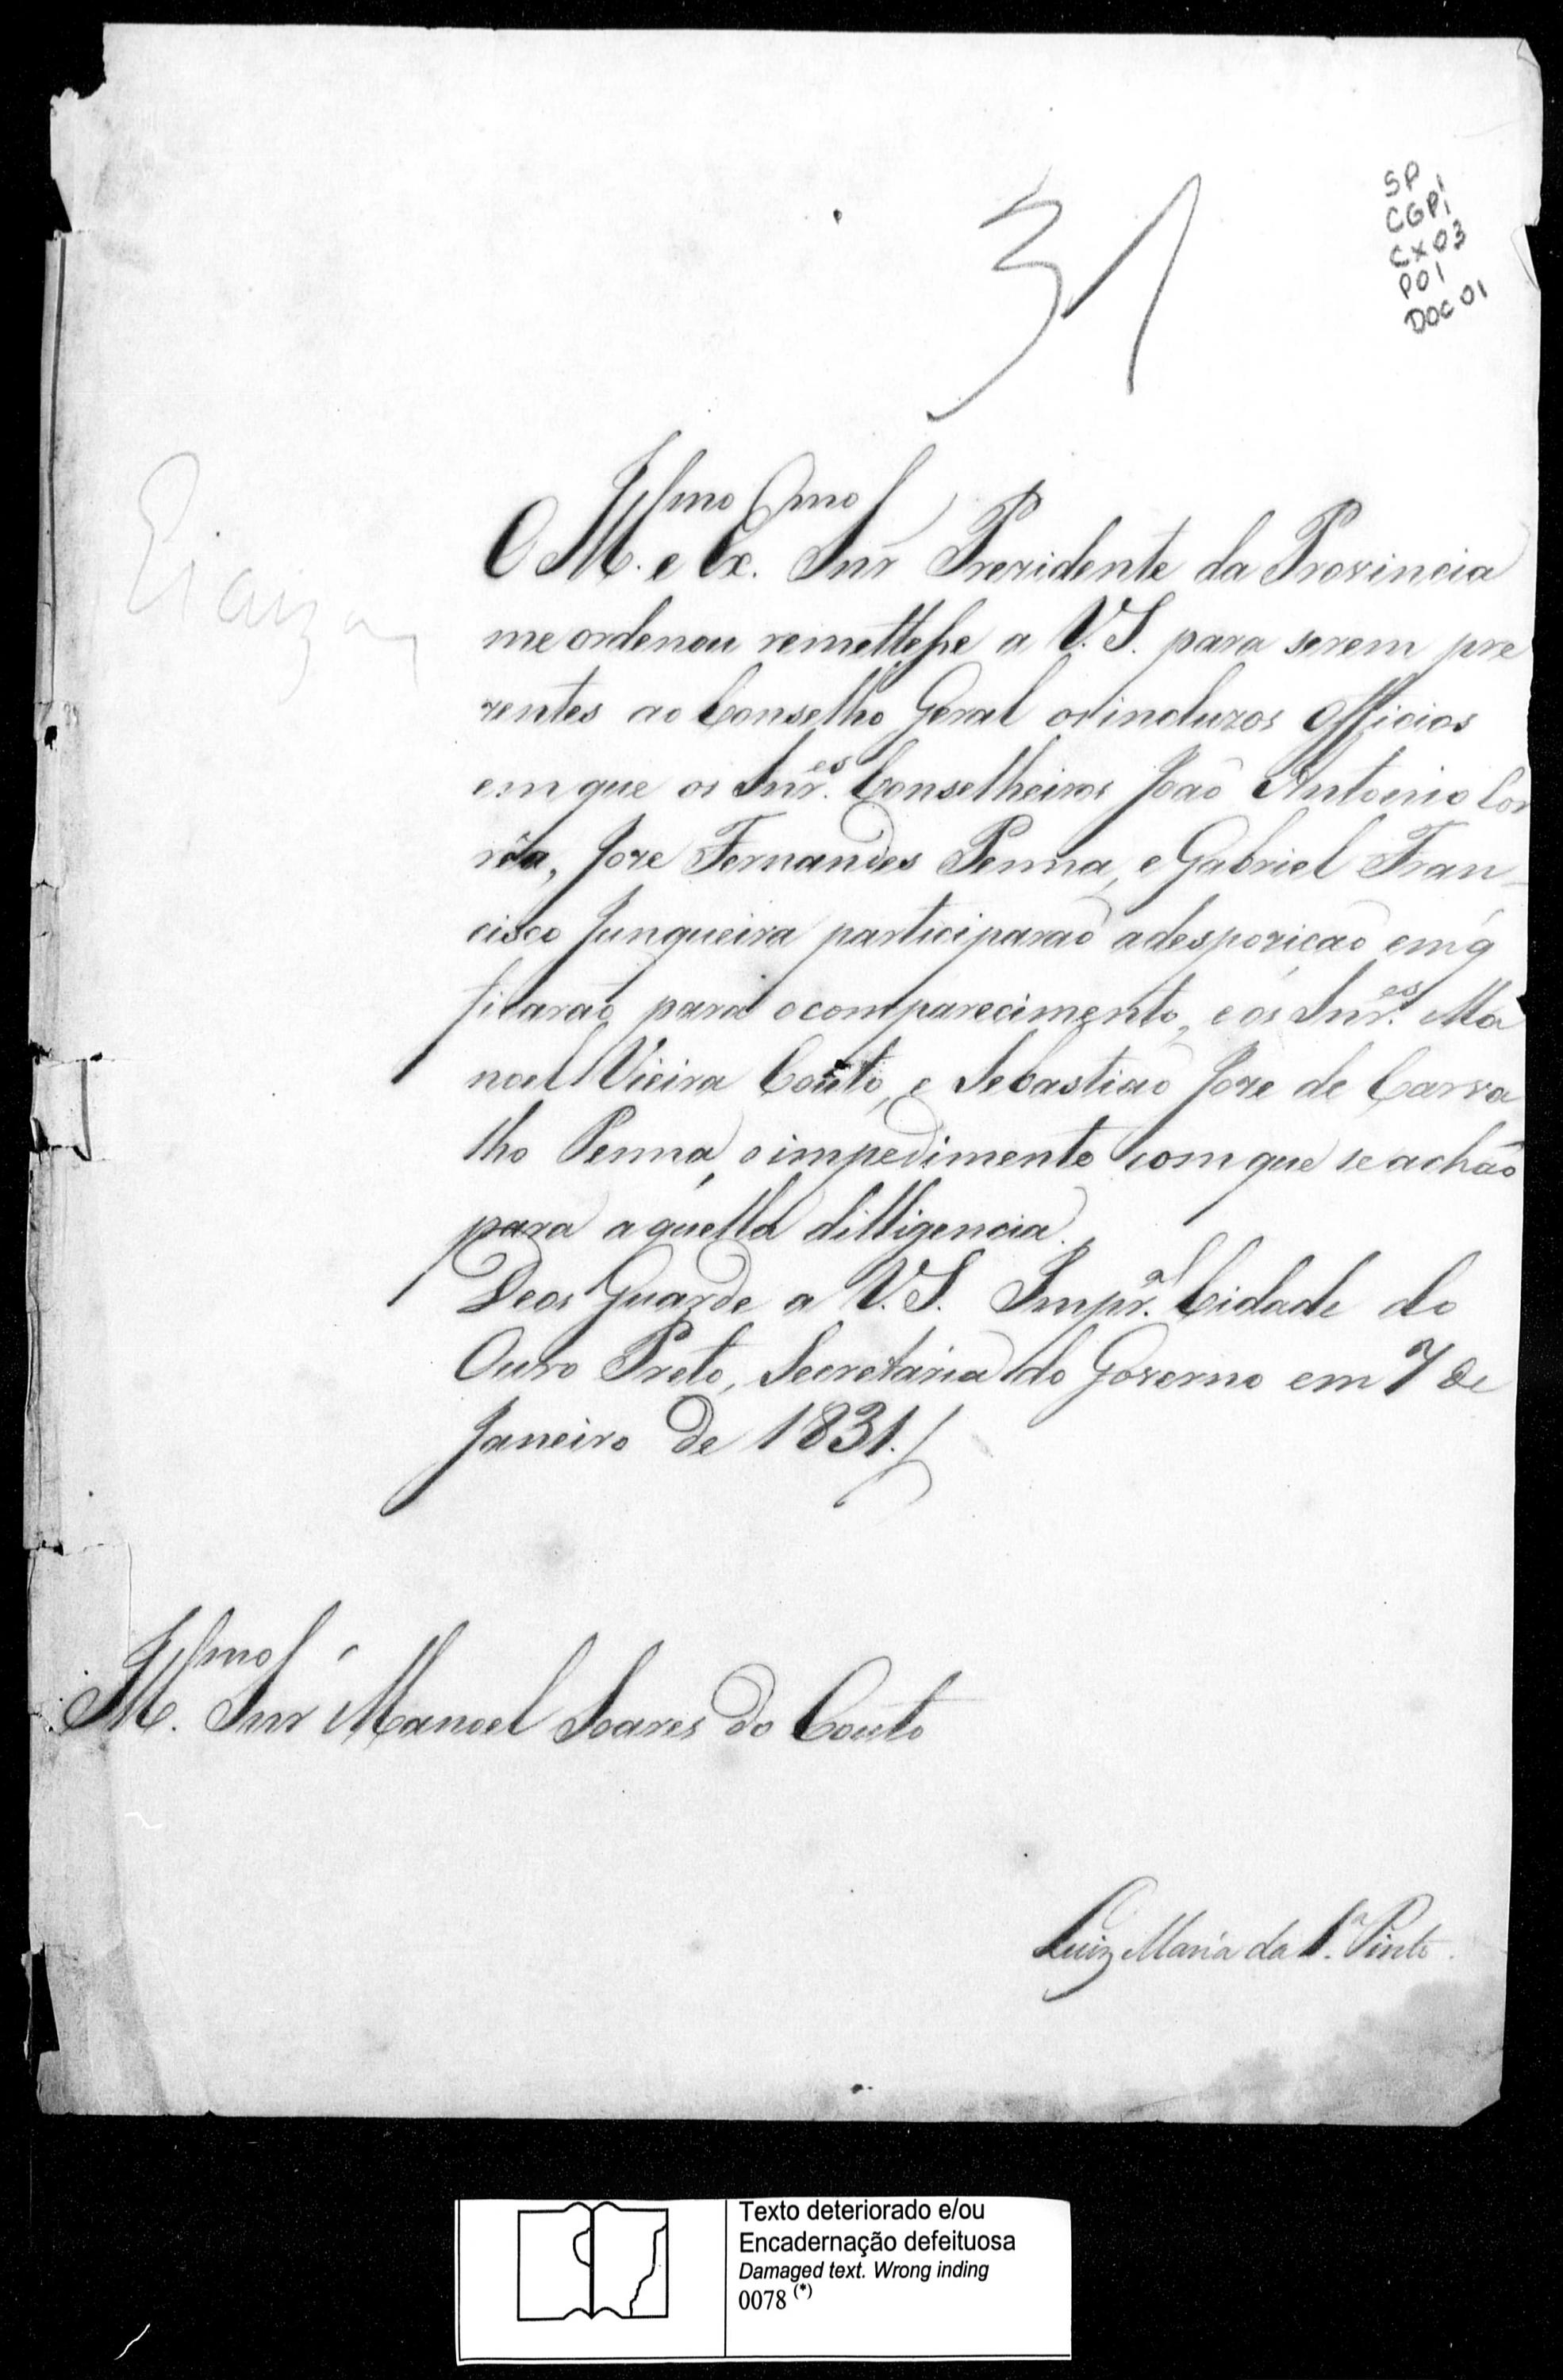 SP
CGP1
CX03
P01
DOC 01
31
O Illmo. e Exmo. Snr Prezidente da Provincia
me ordenou remettesse a V.S. para serem pre
zentes ao Conselho Geral os incluzos Officios
em que os Snres. Conselheiros João Antonio Cor
rêa, Joze Fernandes Penna, e Gabriel Fran-
cisco Junqueira participarão a despozição em q'
ficarão para o comparecimento, e os Snres. Ma
noel Vieira Couto, e Sebastião Joze de Carva
lho Penna, o impedimento com que se achão
para aquella dilligencia.
Deos Guarde a V.S. Impral. Cidade do
Ouro Preto, Secretaria do Governo em 7 de
Janeiro de 1831.
Illmo. Snr Manoel Soares do Couto
Luiz Maria da Sa. Pinto.
Texto deteriorado e/ou
Encadernação defeituosa
Damaged text. Wrong inding
0078 (*)